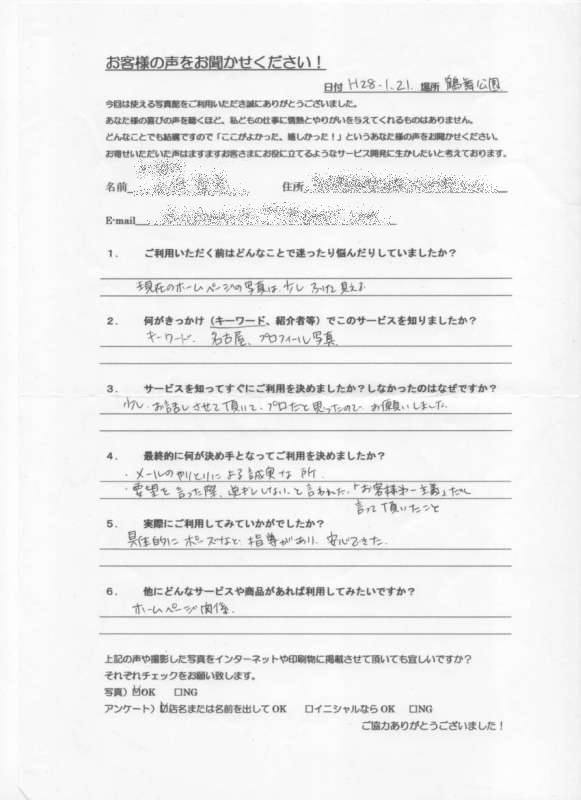 お客様の声をお聞かせください！
日付 H28.1.21. 場所 鶴舞公園
今回は使える写真館をご利用いただき誠にありがとうございました。
あなた様の喜びの声を聴くほど、私どもの仕事に情熱とやりがいを与えてくれるものはありません。
どんなことでも結構ですので「ここがよかった、嬉しかった！」というあなた様の声をお聞かせください。
お寄せいただいた声はますますお客さまにお役に立てるようなサービス開発に生かしたいと考えております。
名前 住所
E-mail
1． ご利用いただく前はどんなことで迷ったり悩んだりしていましたか？
現在のホームページの写真は、少し ふけて見える
2． 何がきっかけ（キーワード、紹介者等）でこのサービスを知りましたか？
キーワード. 名古屋、プロフィール写真
3． サービスを知ってすぐにご利用を決めましたか？しなかったのはなぜですか？
少し、お話しさせて頂いて、プロだと思ったので お願いしました.
4． 最終的に何が決め手となってご利用を決めましたか？
・メールのやりとりによる誠実な所.
・要望を言った際、 しないと言われた.「お客様第一主義」だから
言って頂いたこと
5． 実際にご利用してみていかがでしたか？
具体的に ポーズなど 指導があり、安心できた.
6． 他にどんなサービスや商品があれば利用してみたいですか？
ホームページ関係.
上記の声や撮影した写真をインターネットや印刷物に掲載させて頂いても宜しいですか？
それぞれチェックをお願い致します。
写真）☑OK □NG
アンケート）☑店名または名前を出して OK □イニシャルなら OK □NG
ご協力ありがとうございました！